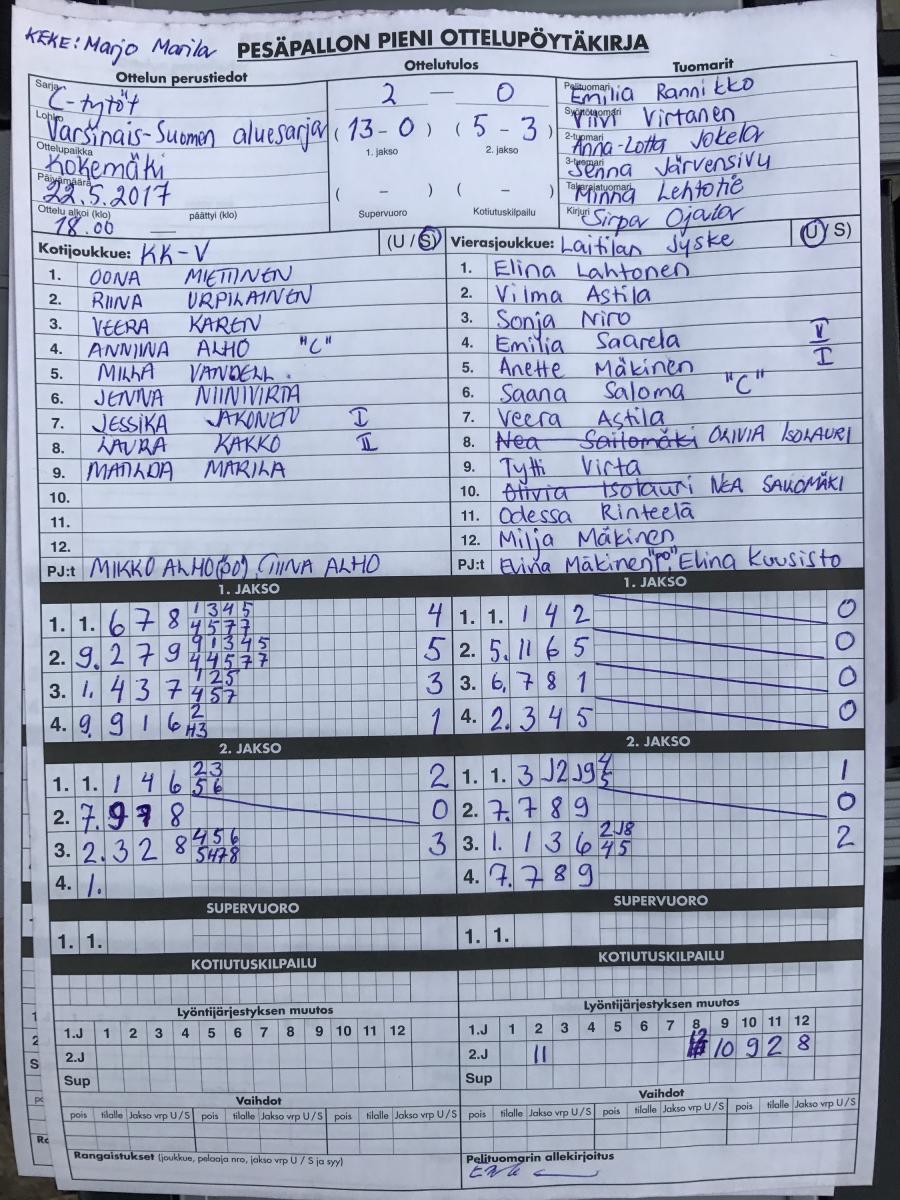 KEKE: Marjo Marila
PESÄPALLON PIENI OTTELUPÖYTÄKIRJA
Ottelun perustiedot
Sarja
C-tytöt
Lohko
Varsinais-Suomen aluesarja
Ottelupaikka
Kokemäki
Päivämäärä
22.5.2017
Ottelu alkoi (klo) päättyi (klo)
18.00
Ottelutulos
2 — 0
(13-0) (5-3)
1. jakso 2. jakso
( - ) ( - )
Supervuoro Kotiutuskilpailu
Tuomarit
Pelituomari
Emilia Rannikko
Syöttötuomari
Viivi Virtanen
2-tuomari
Anna-Lotta Jokela
3-tuomari
Jenna Järvensivu
Takarajatuomari
Minna Lehtotie
Kirjuri
Sirpa Ojala
Kotijoukkue: KK-V (U / S)
1. OONA MIETTINEN
2. RIINA URPILAINEN
3. VEERA KAREN
4. ANNIINA ALHO "C"
5. MILLA VANDELL
6. JENNA NIINIVIRTA
7. JESSIKA JAKONEN I
8. LAURA KAKKO II
9. MATILDA MARILA
10.
11.
12.
PJ:t MIKKO ALHO(PO), TIINA ALHO
Vierasjoukkue: Laitilan Jyske (U / S)
1. Elina Lahtonen
2. Vilma Astila
3. Sonja Niro
4. Emilia Saarela II
5. Anette Mäkinen I
6. Saana Saloma "C"
7. Veera Astila
8. Nea Sallomäki OLIVIA ISOLAURI
9. Tytti Virta
10. Olivia Isolauri NEA SALLOMÄKI
11. Odessa Rinteelä
12. Milja Mäkinen
PJ:t Mäkinen "PO", Elina Kuusisto
1. JAKSO
1. 1. 6 7 8 1 3 4 5 4
4 5 7 7
2. 9. 2 7 9 9 1 3 4 5 5
4 4 5 7 7
3. 1. 4 3 7 1 2 5 3
4 5 7
4. 9. 9 1 6 2 1
H3
1. JAKSO
1. 1. 1 4 2 0
2. 5. 11 6 5 0
3. 6. 7 8 1 0
4. 2. 3 4 5 0
2. JAKSO
1. 1. 1 4 6 2 3 2
5 6
2. 7. 9 7 8 0
3. 2. 3 2 8 4 5 6 3
5 H7 8
4. 1.
2. JAKSO
1. 1. 3 J2 J9 4 1
5
2. 7. 7 8 9 0
3. 1. 1 3 6 2 J8 2
4 5
4. 7. 7 8 9
SUPERVUORO
1. 1.
SUPERVUORO
1. 1.
KOTIUTUSKILPAILU
KOTIUTUSKILPAILU
Lyöntijärjestyksen muutos
1.J 1 2 3 4 5 6 7 8 9 10 11 12
2.J
Sup
Lyöntijärjestyksen muutos
1.J 1 2 3 4 5 6 7 8 9 10 11 12
2.J 11 12 10 9 2 8
Sup
Vaihdot
pois tilalle Jakso vrp U / S pois tilalle Jakso vrp U / S pois tilalle Jakso vrp U / S
Vaihdot
pois tilalle Jakso vrp U / S pois tilalle Jakso vrp U / S pois tilalle Jakso vrp U / S
Rangaistukset (joukkue, pelaaja nro, jakso vrp U / S ja syy)
Pelituomarin allekirjoitus